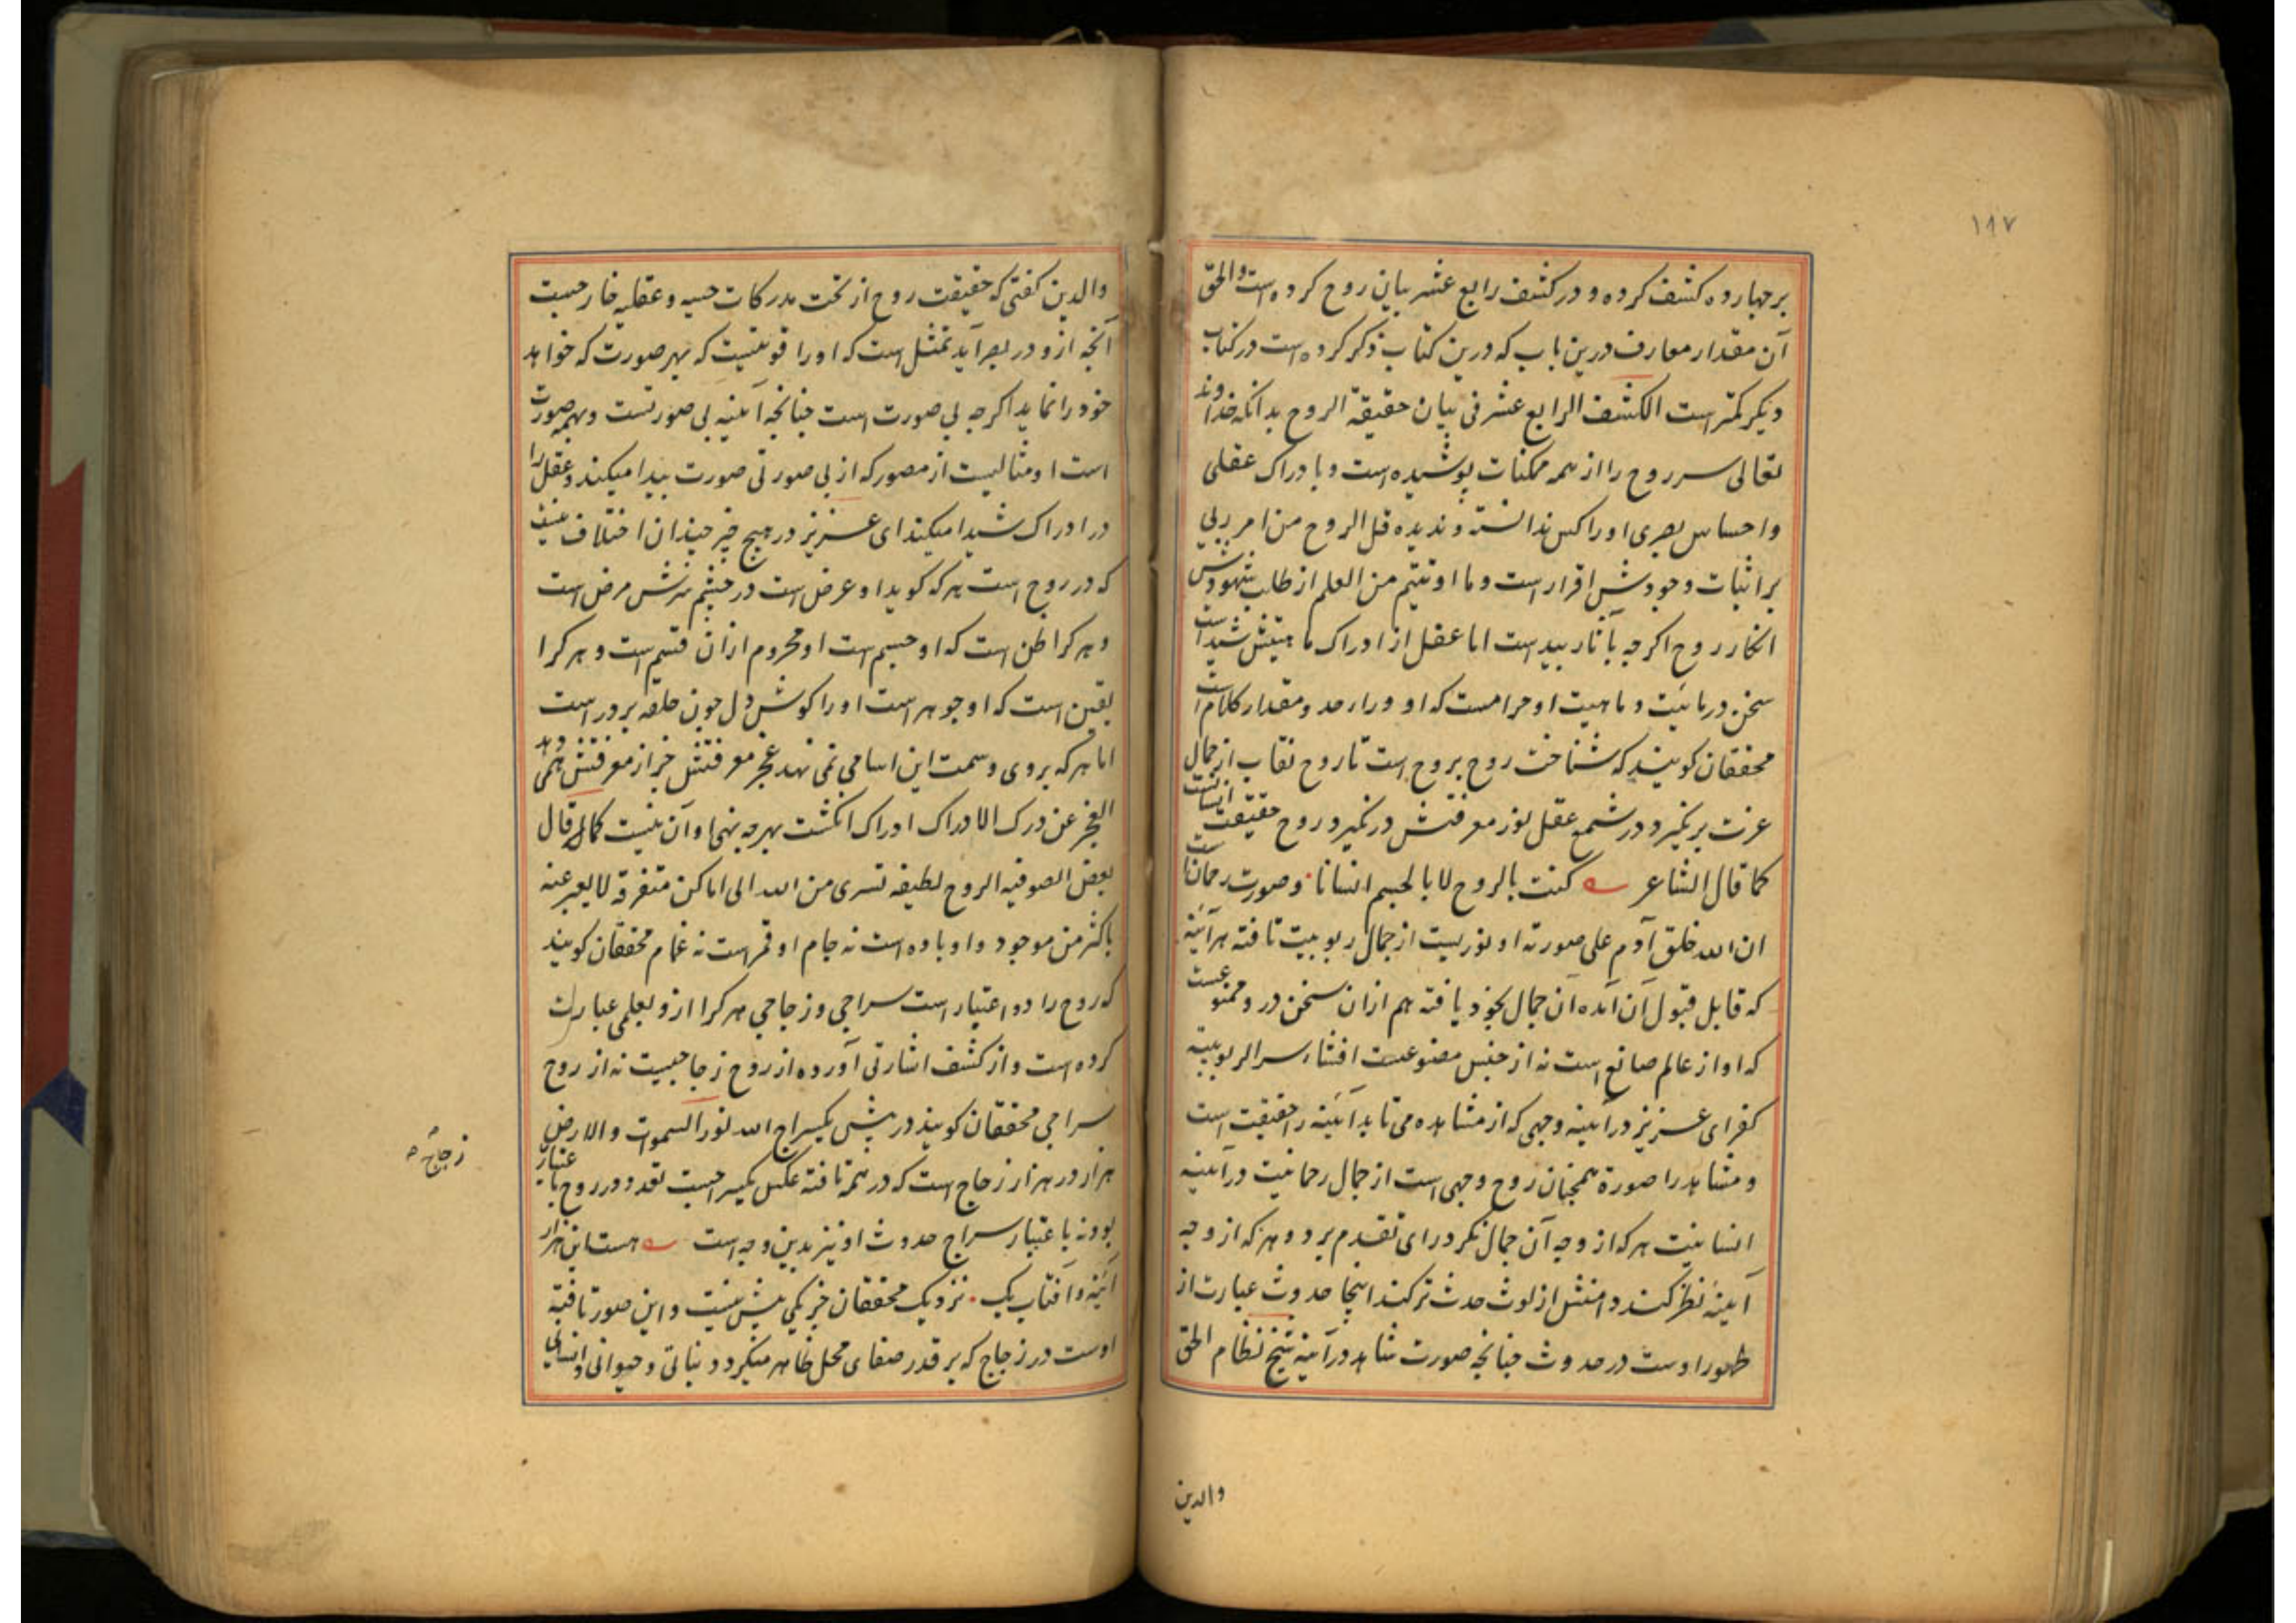 ۱۸۷
برچهارده کشف کرده و در کشف رابع عشر بیان روح کرده است والحق
آن مقدار معارف درین باب که درین کتاب ذکر کرده است در کتاب
دیکر کمتر است الکشف الرابع عشر فی بیان حقیقة الروح بدانکه خداوند
تعالی سر روح را از همه ممکنات پوشیده است و بادراک عقلی
و احساس بصری او را کس ندانسته و ندیده قل الروح من امر ربی
بر اثبات وجودش اقرار است و ما اوتیتم من العلم از طلب شهودش
انکار روح اکرچه بآثار پیداست اما عقل از ادراک ماهیتش شیداست
سخن در مائیت و ماهیت او حرامست که او وراء حد و مقدار کلام است
محققان کویند که شناخت روح بروح است تا روح نقاب از جمال
عزت برنکیرد در شمع عقل نور معرفتش درنکیرد و روح حقیقت انسانست
کما قال الشاعر کنت بالروح لا بالجسم انسانا و صورت رحمانست
ان الله خلق آدم علی صورته او نوریست از جمال ربوبیت تافته هر آئینه
که قابل قبول آن آمده آن جمال بخود یافته هم ازان سخن درو ممنوعست
که او از عالم صانع است نه از جنس مصنوعست افشاء سر الربوبیة
کفر ای عزیز در آئینه وجهی که از مشاهده می تابد آئینه را حقیقت است
و مشاهد را صورة همچنان روح وجهی است از جمال رحمانیت در آئینه
انسانیت هر که از وجه آن جمال نکرد رای تقدم برد و هر که از وجه
آئینه نظر کند دامنش از لوث حدث تر کند اینجا حدوث عبارت از
ظهور اوست در حدوث چنانچه صورت شاهد در آئینه شیخ نظام الحق
والدین
والدین کفتی که حقیقت روح از تحت مدرکات حسیه و عقلیه خارجست
آنچه ازو در بصر آید تمثل است که او را قوتیست که بهر صورت که خواهد
خود را نماید اکرچه بی صورت است چنانچه آئینه بی صورتست و بهمه صورت
است او مثالیست از مصور که از بی صورتی صورت پیدا میکند و عقل را
در ادراک شیدا میکند ای عزیز در هیچ چیز چندان اختلاف نیست
که در روح است هر که کوید او عرض است در چشم سرش مرض است
و هر کرا ظن است که او جسم است او محروم ازان قسم است و هر کرا
یقین است که او جوهر است او را کوش دل چون حلقه بر در است
اما هر که بر وی وسمت این اسامی نمی نهد عجز معرفتش خبر از معرفتش همی دهد
العجز عن درک الادراک ادراک انکشت بهرچه نهی او آن نیست کما قال
بعض الصوفیه الروح لطیفه تسری من الله الی اماکن متفرقة لا یعبر عنه
باکثر من موجود و او باده است نه جام او قمر است نه غمام محققان کویند
که روح را دو اعتبار است سراجی و زجاجی هر کرا ازو بعلمی عبارت
کرده است و از کشف اشارتی آورده از روح زجاجیست نه از روح
سراجی محققان کویند در پیش یکسراج الله نور السموات والارض
هزار در هزار زجاج است که در همه تافته عکس یکسراجست تعدد در روح باعتبار
زجاج ه
بود نه باعتبار سراج حدوث او نیز بدین وجه است هست این هزار
آئینه و آفتاب یک نزدیک محققان جز یکی بیش نیست و این صور تافته
اوست در زجاج که بر قدر صفای محل ظاهر میکردد نباتی و حیوانی و انسانی